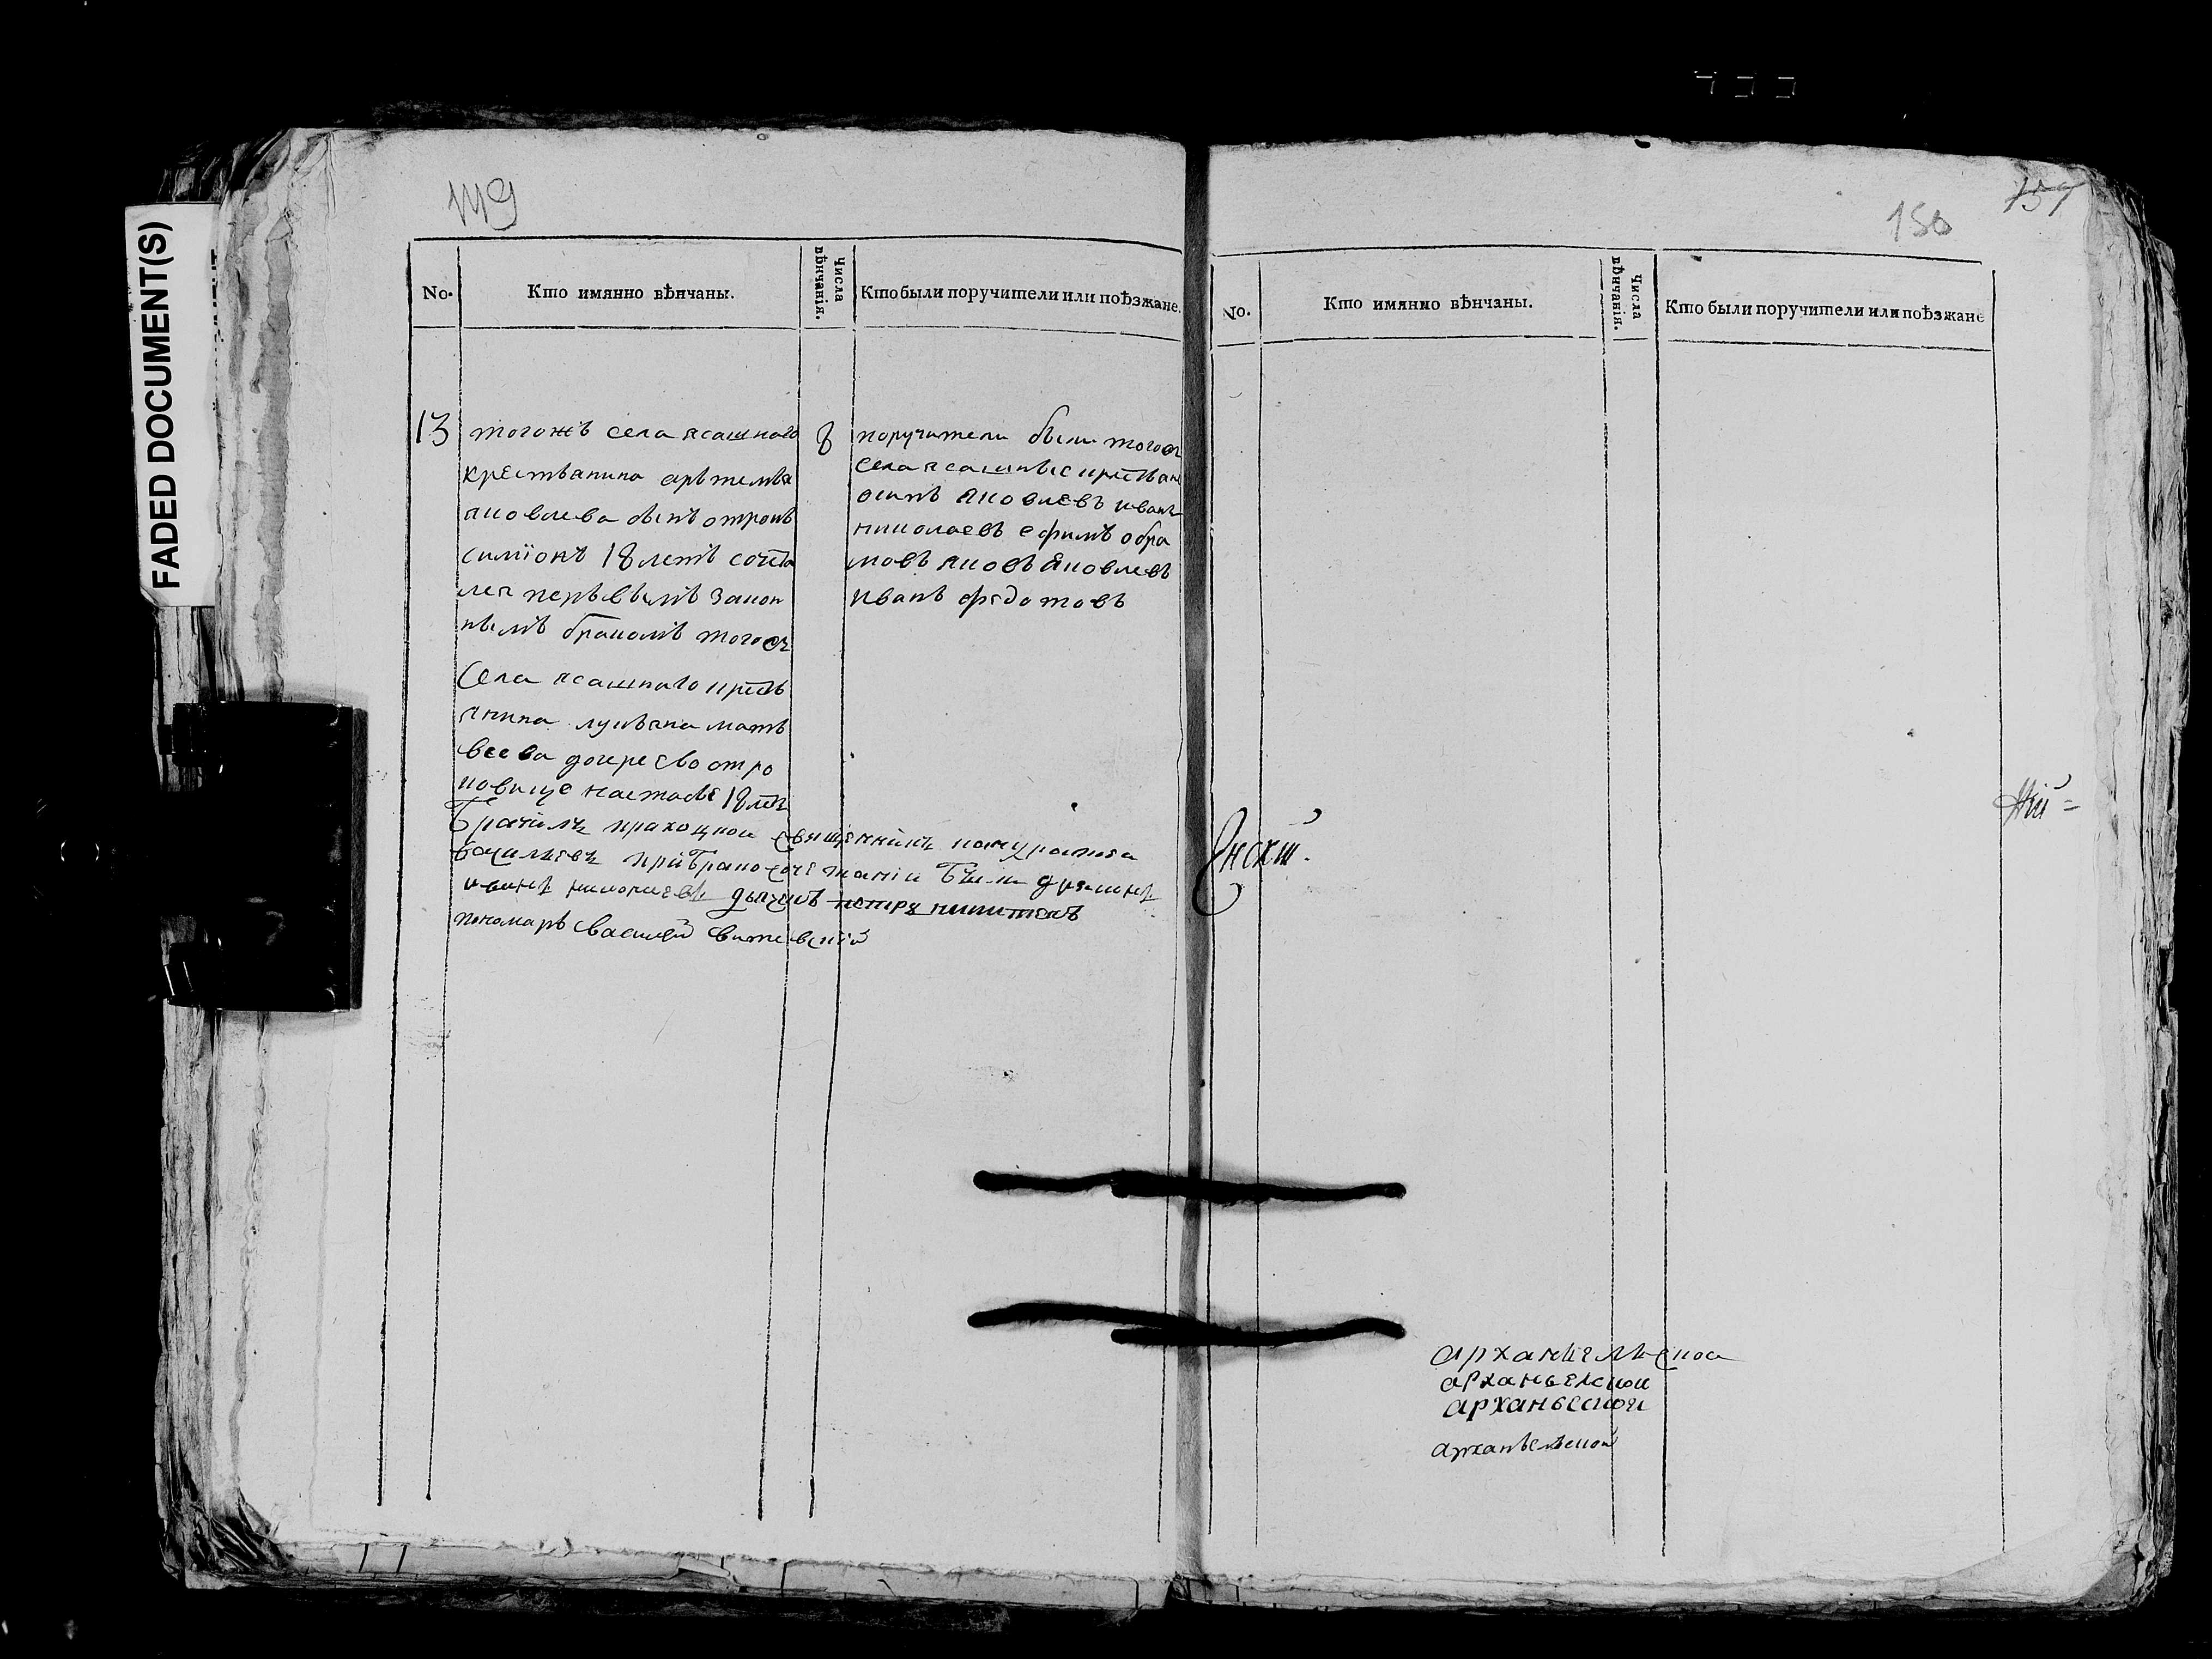 FADED DOCUMENT(S)
149
No.
Кто имянно вѣнчаны.
Числа вѣнчанiя.
Кто были поручители или поѣзжане.
13
тогожъ села ясашнаго
крестьянина арътемья
яковлева сынъ отрокъ
симїонъ 18 летъ сочета
лся перьвымъ закон
нымъ бракомъ тогож
села ясашнаго крестъ
янина лукьяна матъ
веева дочерею отро
ковице настасье 18 летъ
8
поручители были тогож
села ясашные крестьяне
осипъ яковлевъ иванъ
николаевъ ефимъ обра
мовъ яковъ яковлевъ
иванъ федотовъ
Брачилъ приходной священникъ
васильевъ при Бракосочетании Были дьяконъ
иванъ дьячекъ петръ никитинъ
пономарь василей
150
157
No.
Кто имянно вѣнчаны.
Числа вѣнчанiя.
Кто были поручители или поѣзжане
архангельской
арханьелской
арханьеской
арханьельской